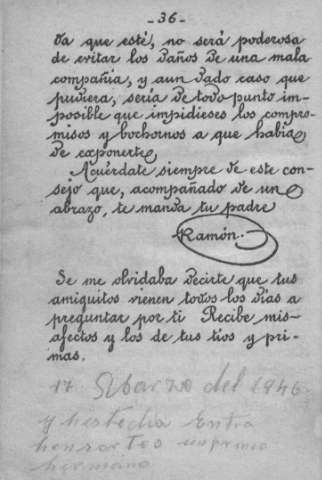 -36-
da que esté, no será poderosa
de evitar los daños de una mala
compañía, y aun dado caso que
pudiera, sería de todo punto im-
posible que impidieses los compro-
misos y bochornos a que había
de exponerte
Acuérdate siempre de este con-
sejo que, acompañado de un
abrazo, te manda tu padre
Ramón.
Se me olvidaba decirte que tus
amiguitos vienen todos los días a
preguntar por ti Recibe mis
afectos y los de tus tíos y pri-
mas.
17 Marzo del 1946
y
hermano